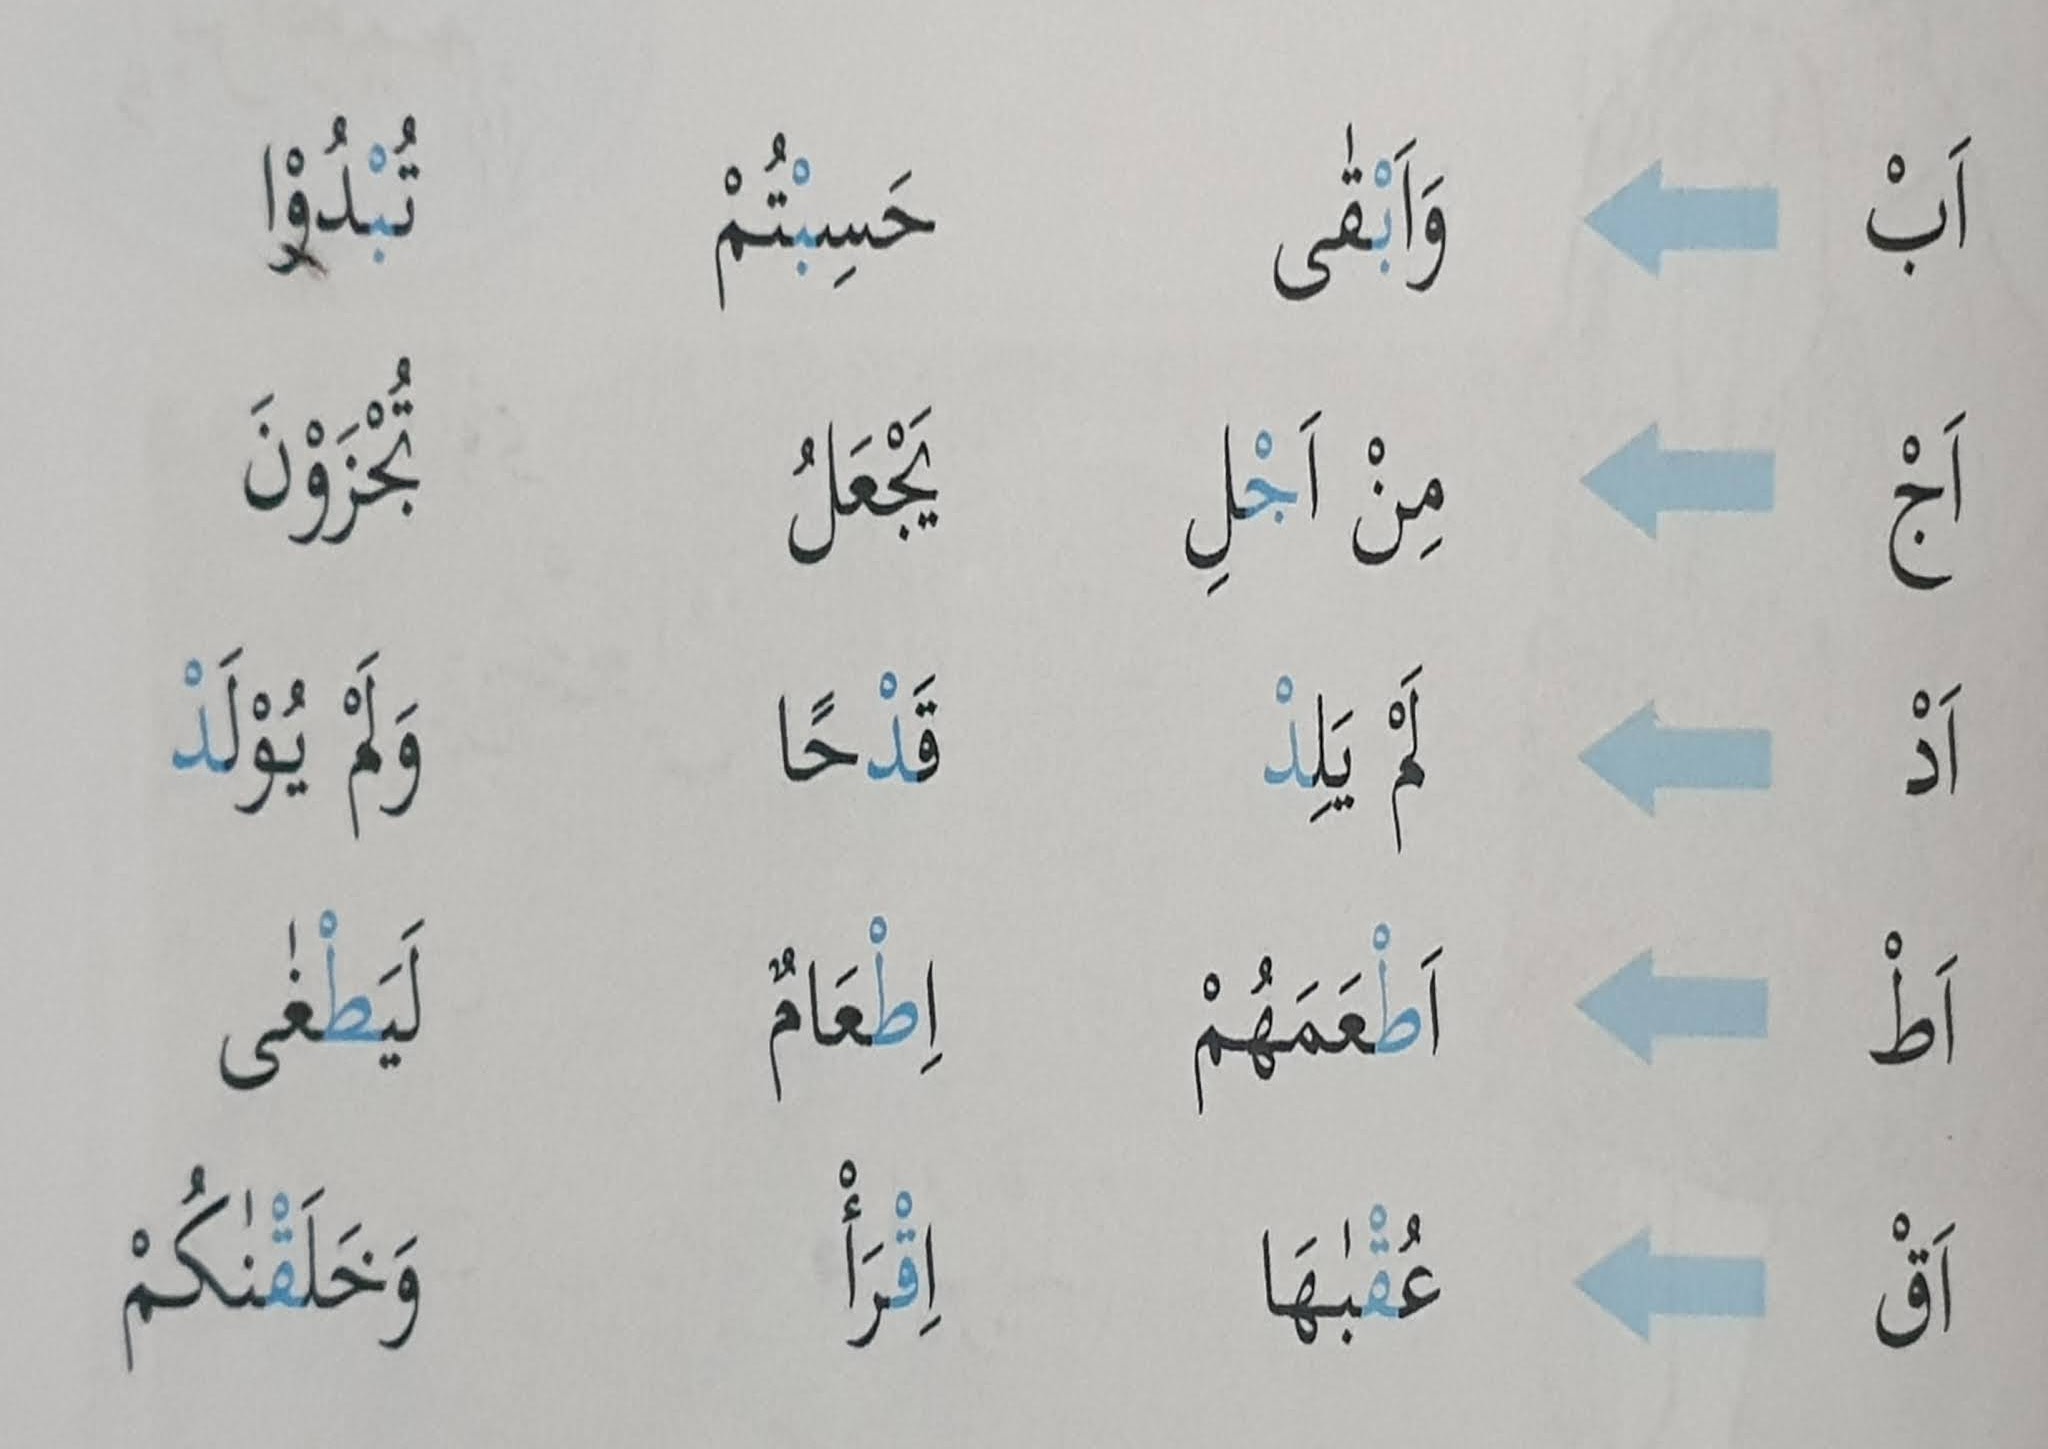 اَبْ وَاَبْقٰى حَسِبْتُمْ تُبْدُوْا
اَجْ مِنْ اَجْلِ يَجْعَلُ تُجْزَوْنَ
اَدْ لَمْ يَلِدْ قَدْحًا وَلَمْ يُوْلَدْ
اَطْ اَطْعَمَهُمْ اِطْعَامٌ لَيَطْغٰى
اَقْ عُقْبٰهَا اِقْرَأْ وَخَلَقْنٰكُمْ